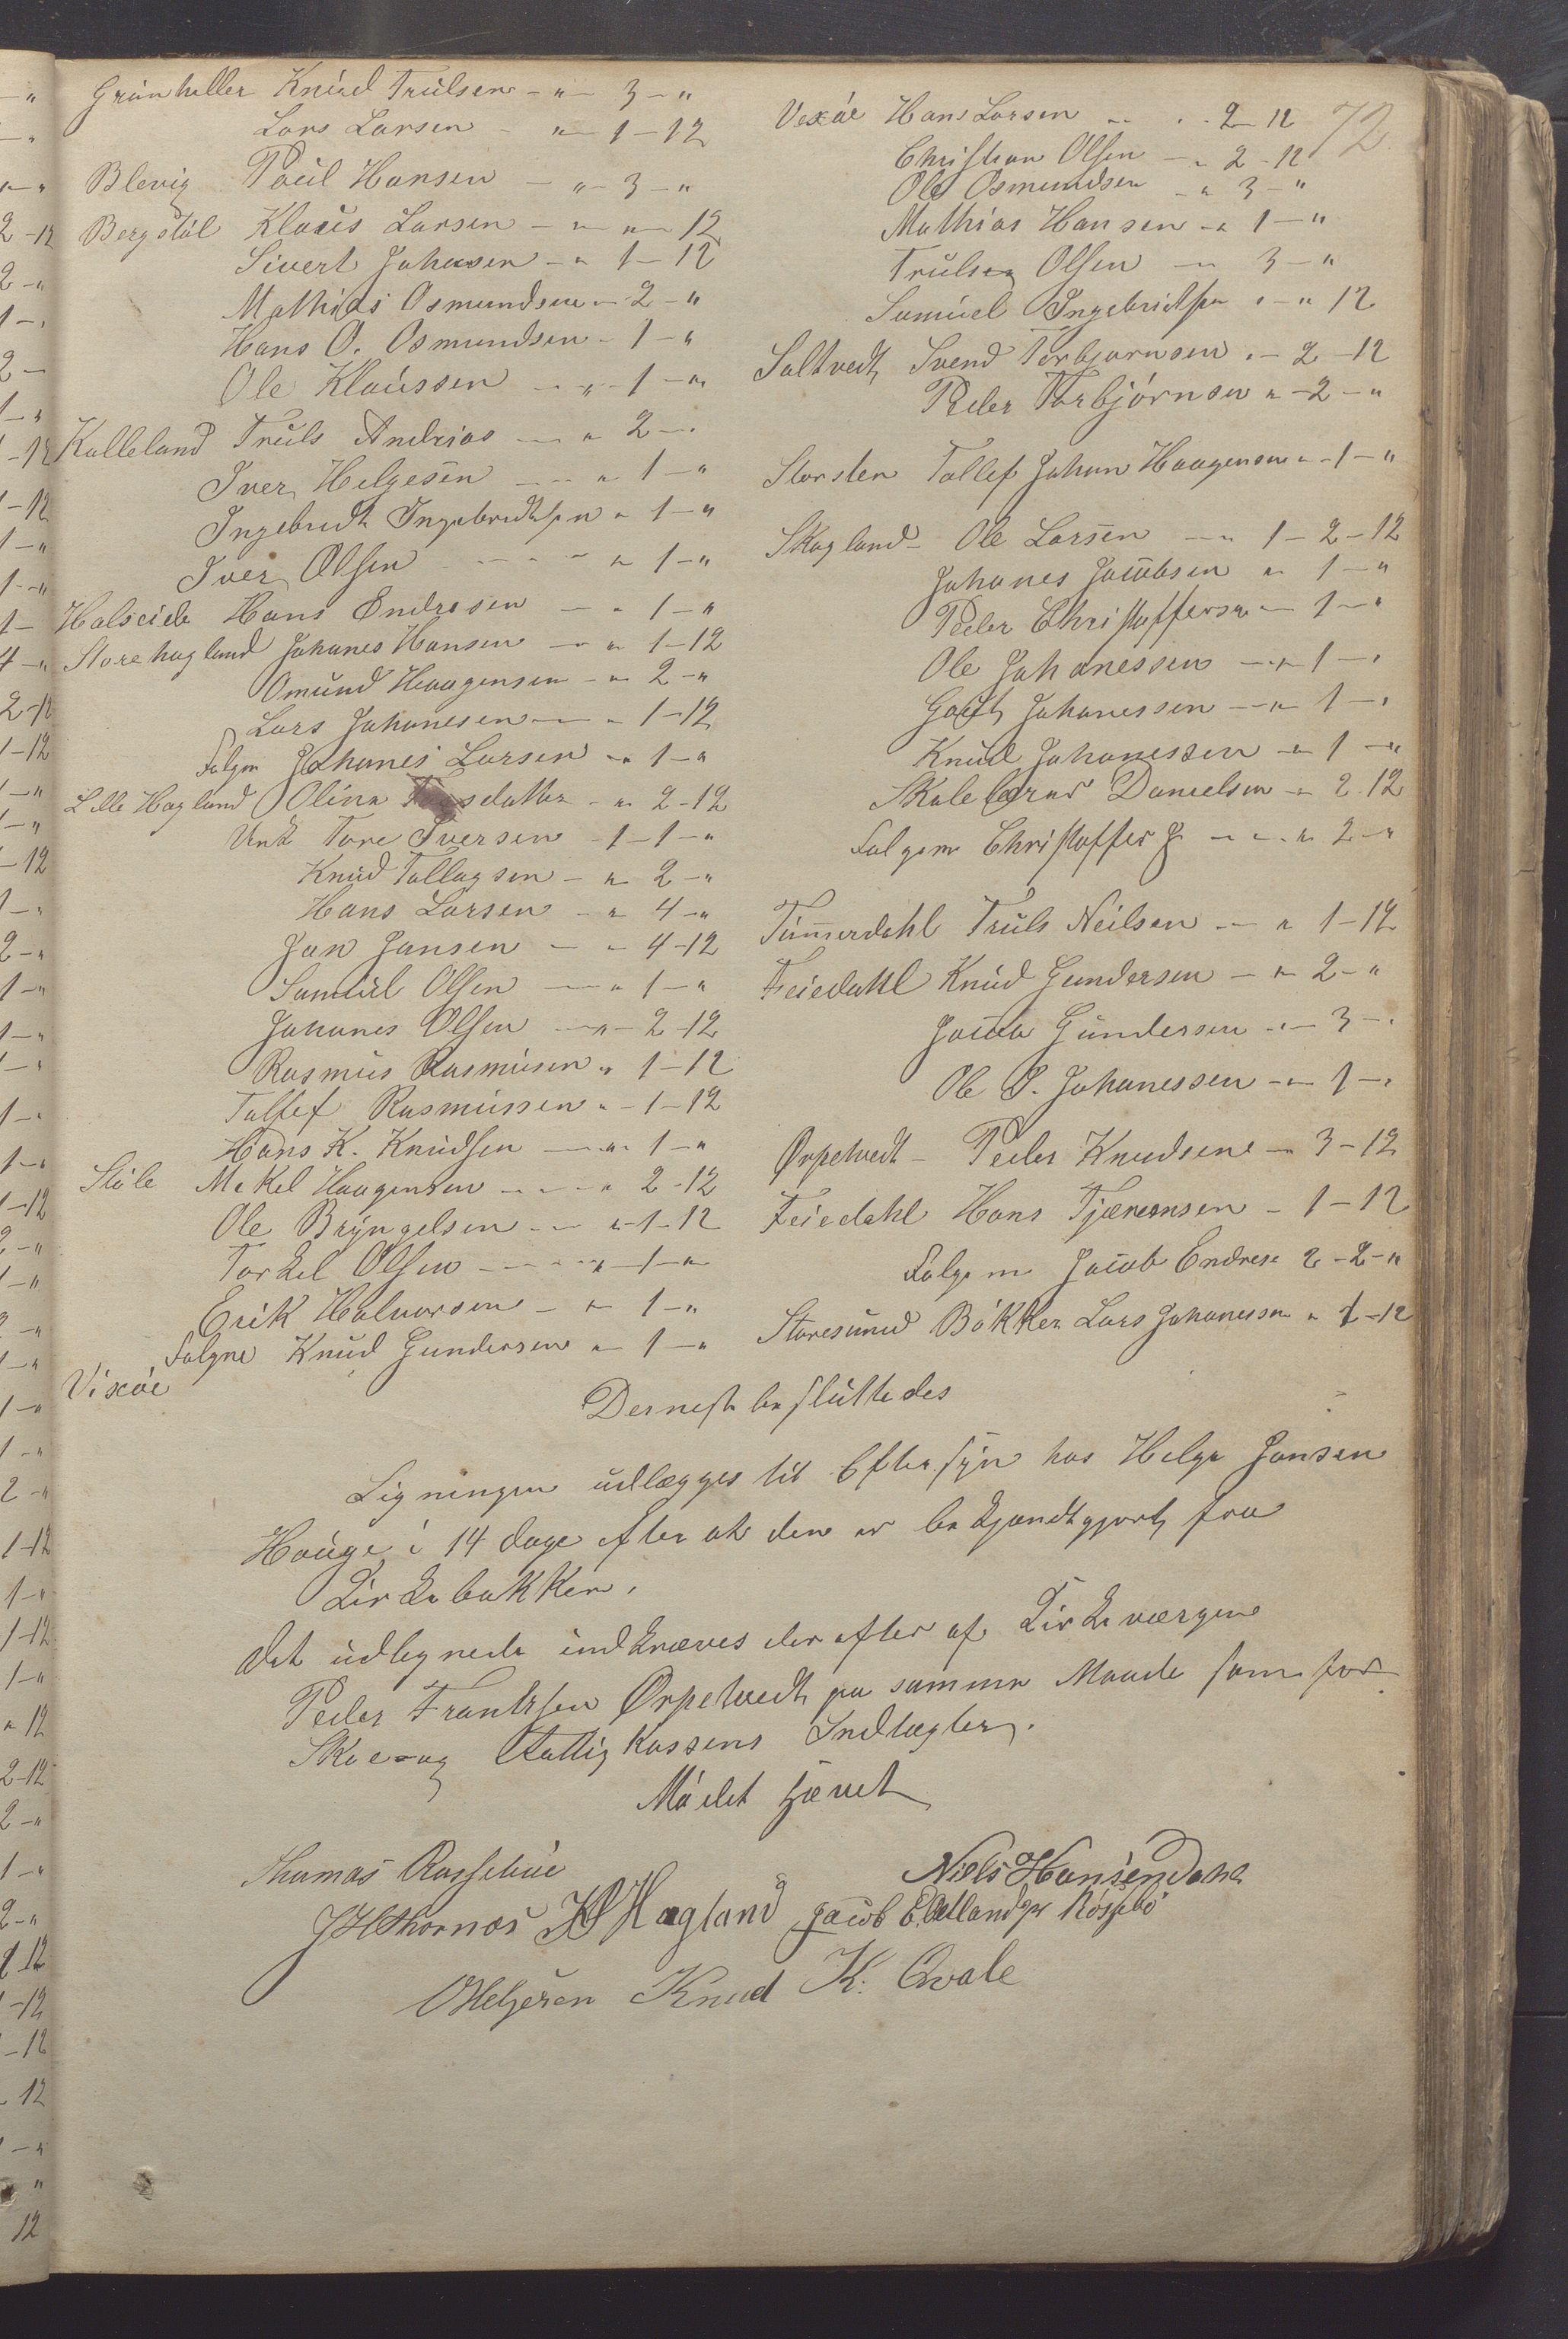 72.
Grönheller Knud Trulsen - " - 3 - "
Lars Larsen - " - 1 - 12
Blevig Poul Hansen - " - 3 - "
Bergstöl Klaus Larsen - " - " - 12
Sivert Johnsen - " 1 - 12
Mathias Osmundsen - 2 - "
Hans O. Osmundsen - 1 - "
Ole Klaussen - " - 1 - "
Kalleland Truls Andrias - " 2 - "
Iver Helgesen - " 1 - "
Ingebridt Ingebridtsen " 1 - "
Iver Olsen - " 1 - "
Halseide Hans Endresen - " 1 - "
Storehagland Johanes Hansen - " 1 - 12
Omund Haagensen - " 2 - "
Lars Johanesen - " 1 - 12
Følgem Johanes Larsen - " 1 - "
Lille Hagland Olina datter - " 2 - 12
Unk Tore Iversen - 1 - 1 - "
Knud Tollagsen - " 2 - "
Hans Larsen - " 4 - "
Jan Jansen - " 4 - 12
Samuel Olsen - " 1 - "
Johanes Olsen - " - 2 - 12
Rasmus Rasmusen " 1 - 12
Tollef Rasmussen " - 1 - 12
Hans K. Knudsen - " 1 - "
Stöle Mekel Haagensen - " 2 - 12
Ole Bryngelsen - " - 1 - 12
Torkel Olsen - " - 1 - "
Erik Halvorsen - " 1 - "
Følgne Knud Gundersen " 1 - "
Vixöe
Vexöe Hans Larsen " . . 2 - 12
Christian Olsen - " 2 - 12
Ole Osmundsen - " 3 - "
Mathias Hansen - " 1 - "
Trulsen Olsen - " 3 - "
Samuel Ingebridtsen " - " 12
Saltvedt Svend Torbjornsen " - 2 - 12
Peder Torbjörnsen " - 2 - "
Storsten Tollef Johan Haagensen " - 1 - "
Skogland - Ole Larsen - " 1 - 2 - 12
Johanes Jacobsen " 1 - "
Peder Christoffersen - 1 - "
Ole Johanessen - " - 1 - "
Gout Johanessen - " - 1 - "
Knud Johanessen - " 1 - "
Skolelærer Danielsen - " 2 - 12
Følgem Christoffer J - " 2 - "
Timerdahl Truls Neilsen - " 1 - 12
Feiedahl Knud Gundersen - " 2 - "
Gundersen - " - 3 - "
Ole P. Johanessen - " 1 - "
Ørpetvedt - Peder Knudsen - " 3 - 12
Feiedahl Hans - 1 - 12
Følgem Jacob Endrese " - 2 - "
Storesund Bökker Lars Johanessen " 1 - 12
Dernest besluttedes
Ligningen udlægges til Eftersyn hos Helge Jansen
Hauge i 14 dage efter at den er bekjendtgjort fra
Kirkebakken.
Det udlignede indkræves derefter af Kirkeværgen
Peder Frantzsen Ørpetvedt paa samme Maade som for
Skole- og Fattigkassens Indtægter.
Mödet hævet
Thomas Rossebøe Niels Hansen Dahl
JHThornæs KHagland Jacob E. Østlandgr Rössebö
OHelgesen Knud K. Qvale